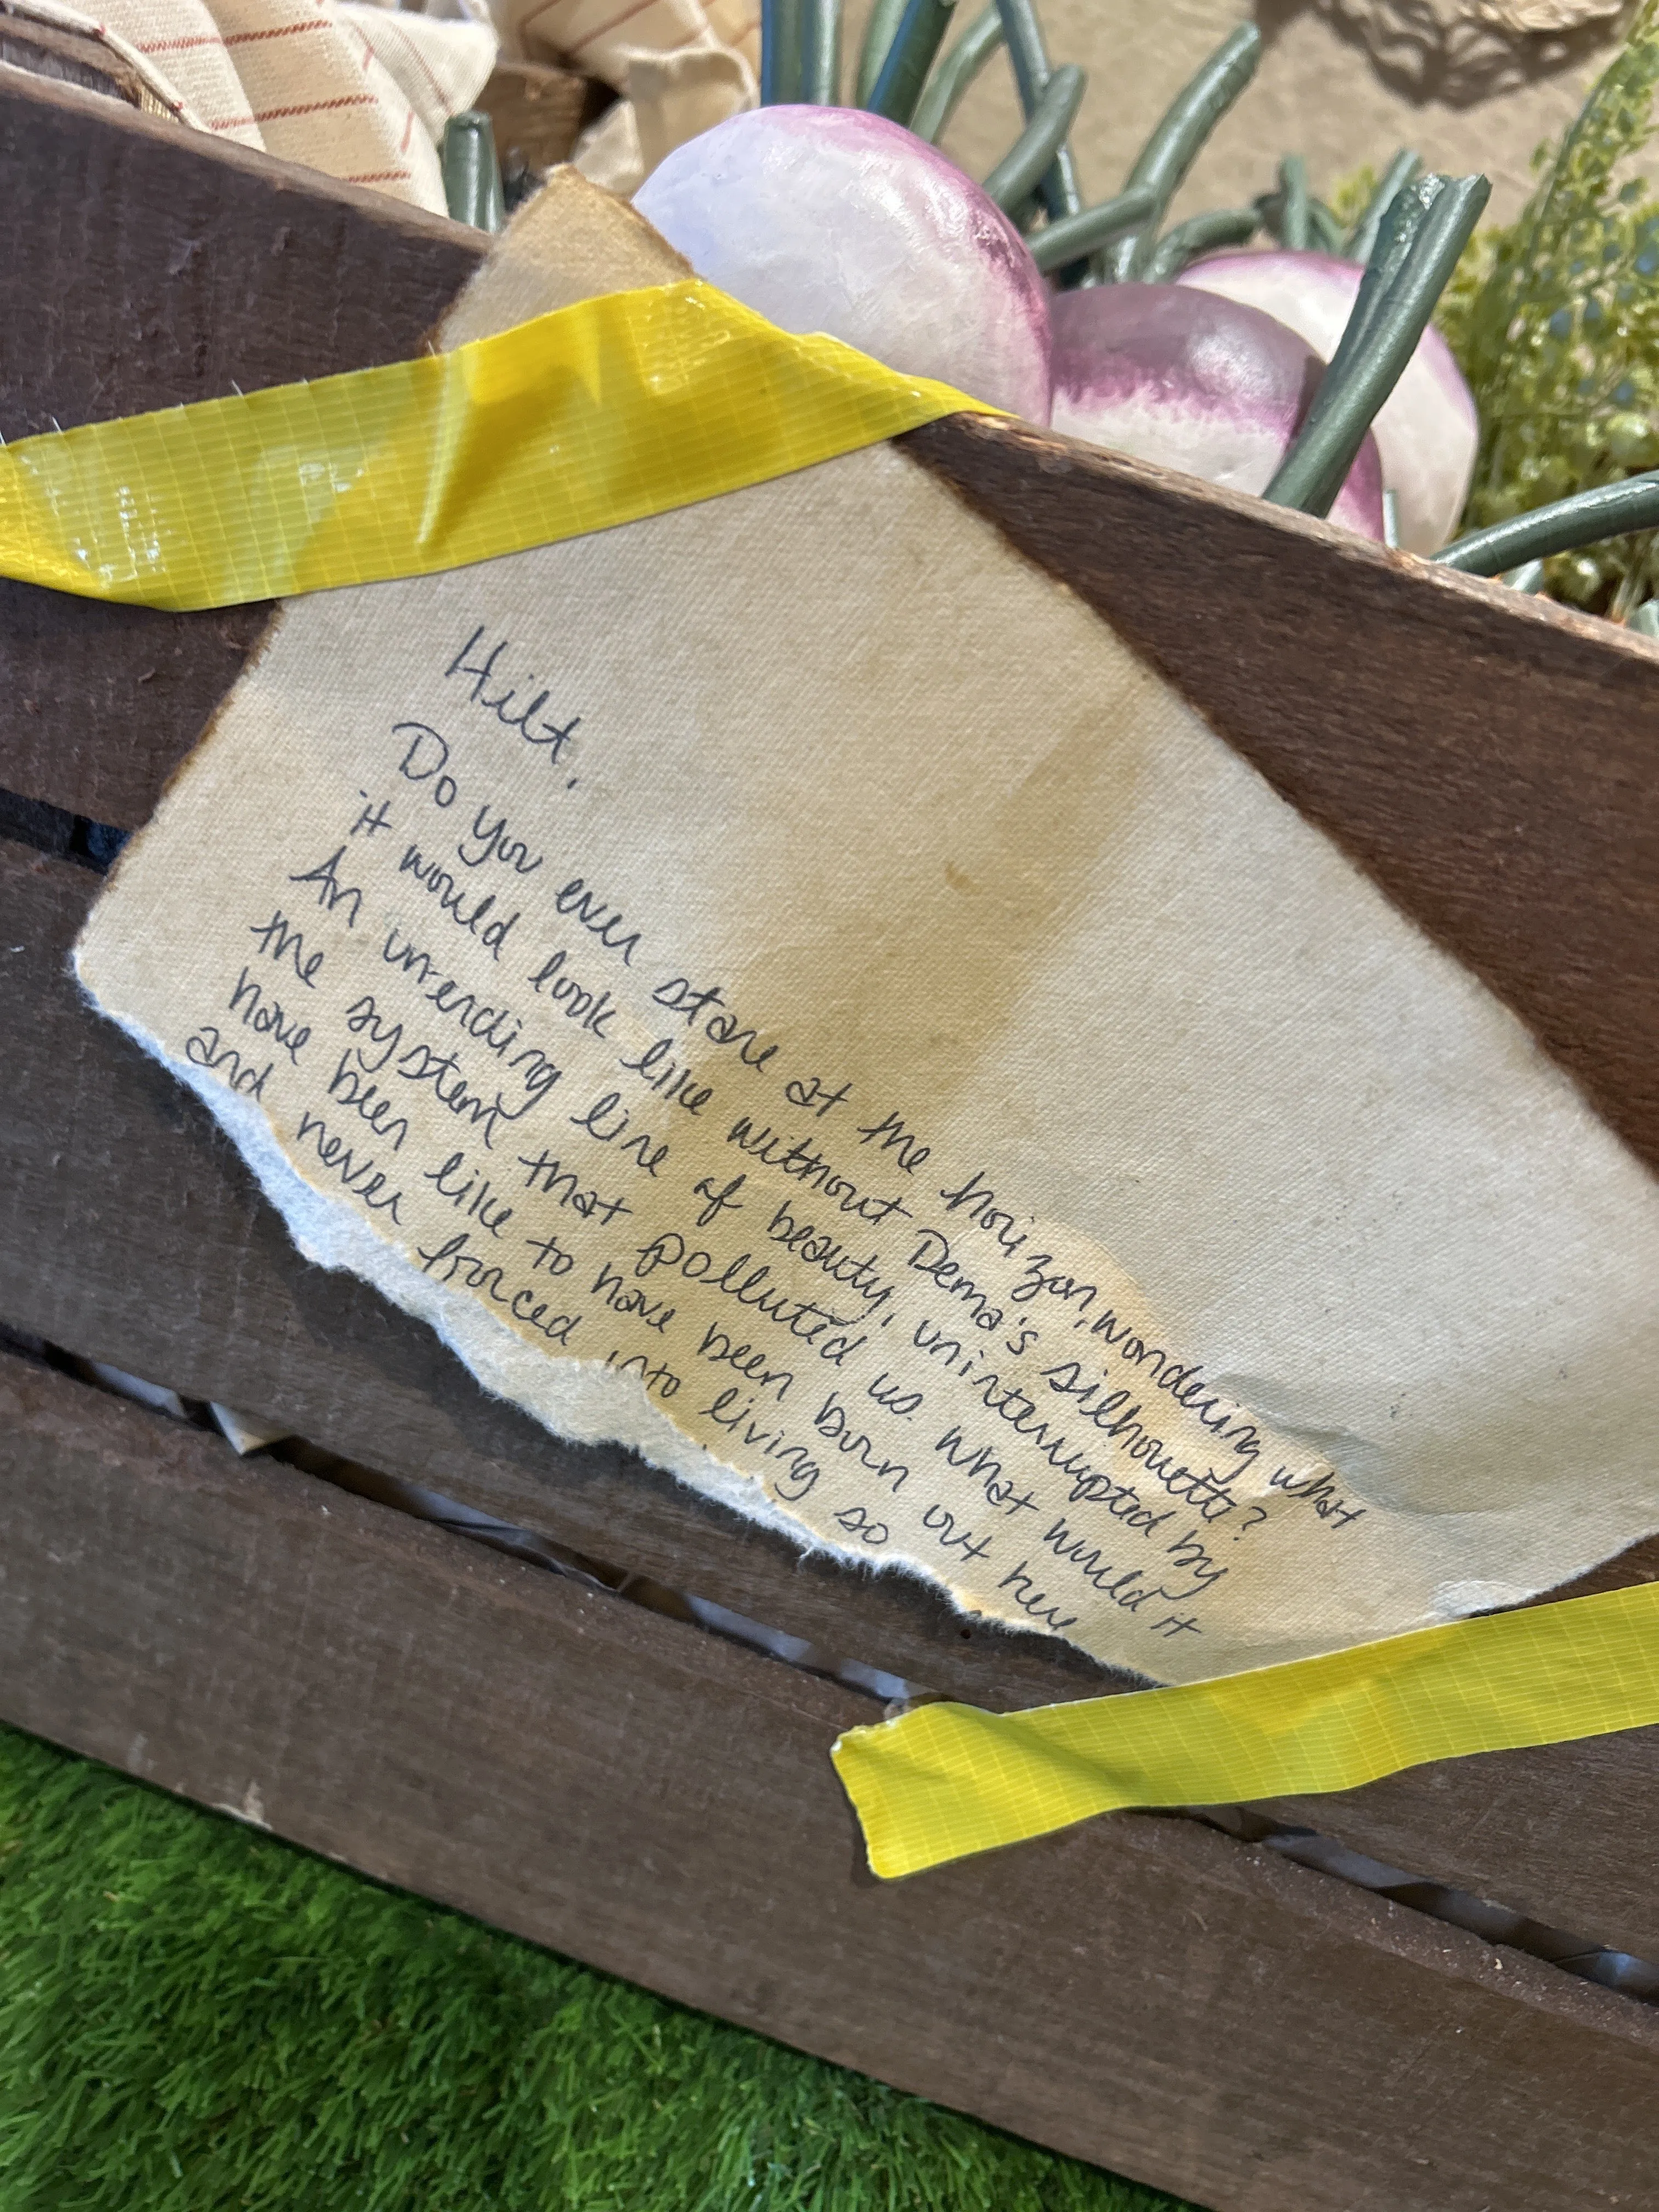 Hilt,
Do you ever stare at the horizon, wondering what
it would look like without Dema's silhouette?
An unending line of beauty, uninterrupted by
the system that polluted us. What would it
have been like to have been born out here
and never forced into living so